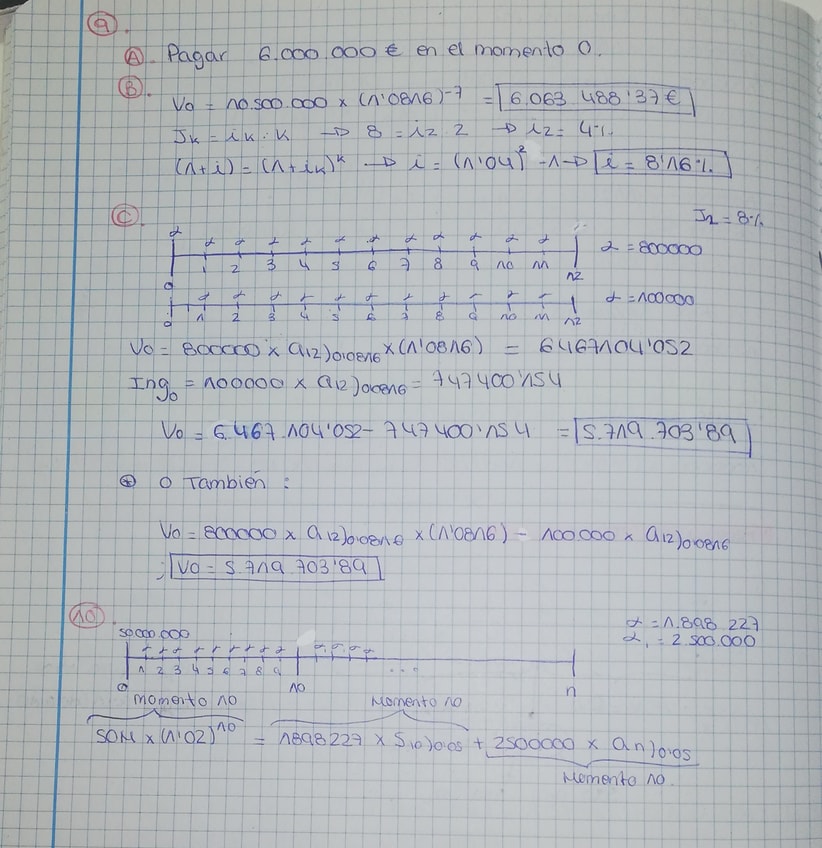 9.
A. Pagar 6.000.000 € en el momento 0.
B. V0 = 10.500.000 × (1'0816)^-7 = 6.063.488'37 €
Jk = ik · k → 8 = i2 2 → i2 = 4%
(1+i) = (1+ik)^k → i = (1'04)^2 - 1 → i = 8'16%
C. J2 = 8%
α α α α α α α α α α α α α = 800000
0 1 2 3 4 5 6 7 8 9 10 11 12
α α α α α α α α α α α α = 100000
0 1 2 3 4 5 6 7 8 9 10 11 12
V0 = 800000 × a12)0'0816 × (1'0816) = 6467104'052
Ing0 = 100000 × a12)0'0816 = 747400'154
V0 = 6.467.104'052 - 747400'154 = 5.719.703'89
⊛ O También :
V0 = 800000 × a12)0'0816 × (1'0816) - 100.000 × a12)0'0816
; V0 = 5.719.703'89
10. α = 1.898.227
50000.000 α1 = 2.500.000
α α α α α α α α α α α α α
0 1 2 3 4 5 6 7 8 9 10 ... n
momento 10 Momento 10
50M × (1'02)^10 = 1898227 × S10)0.05 + 2500000 × an)0.05
Momento 10.